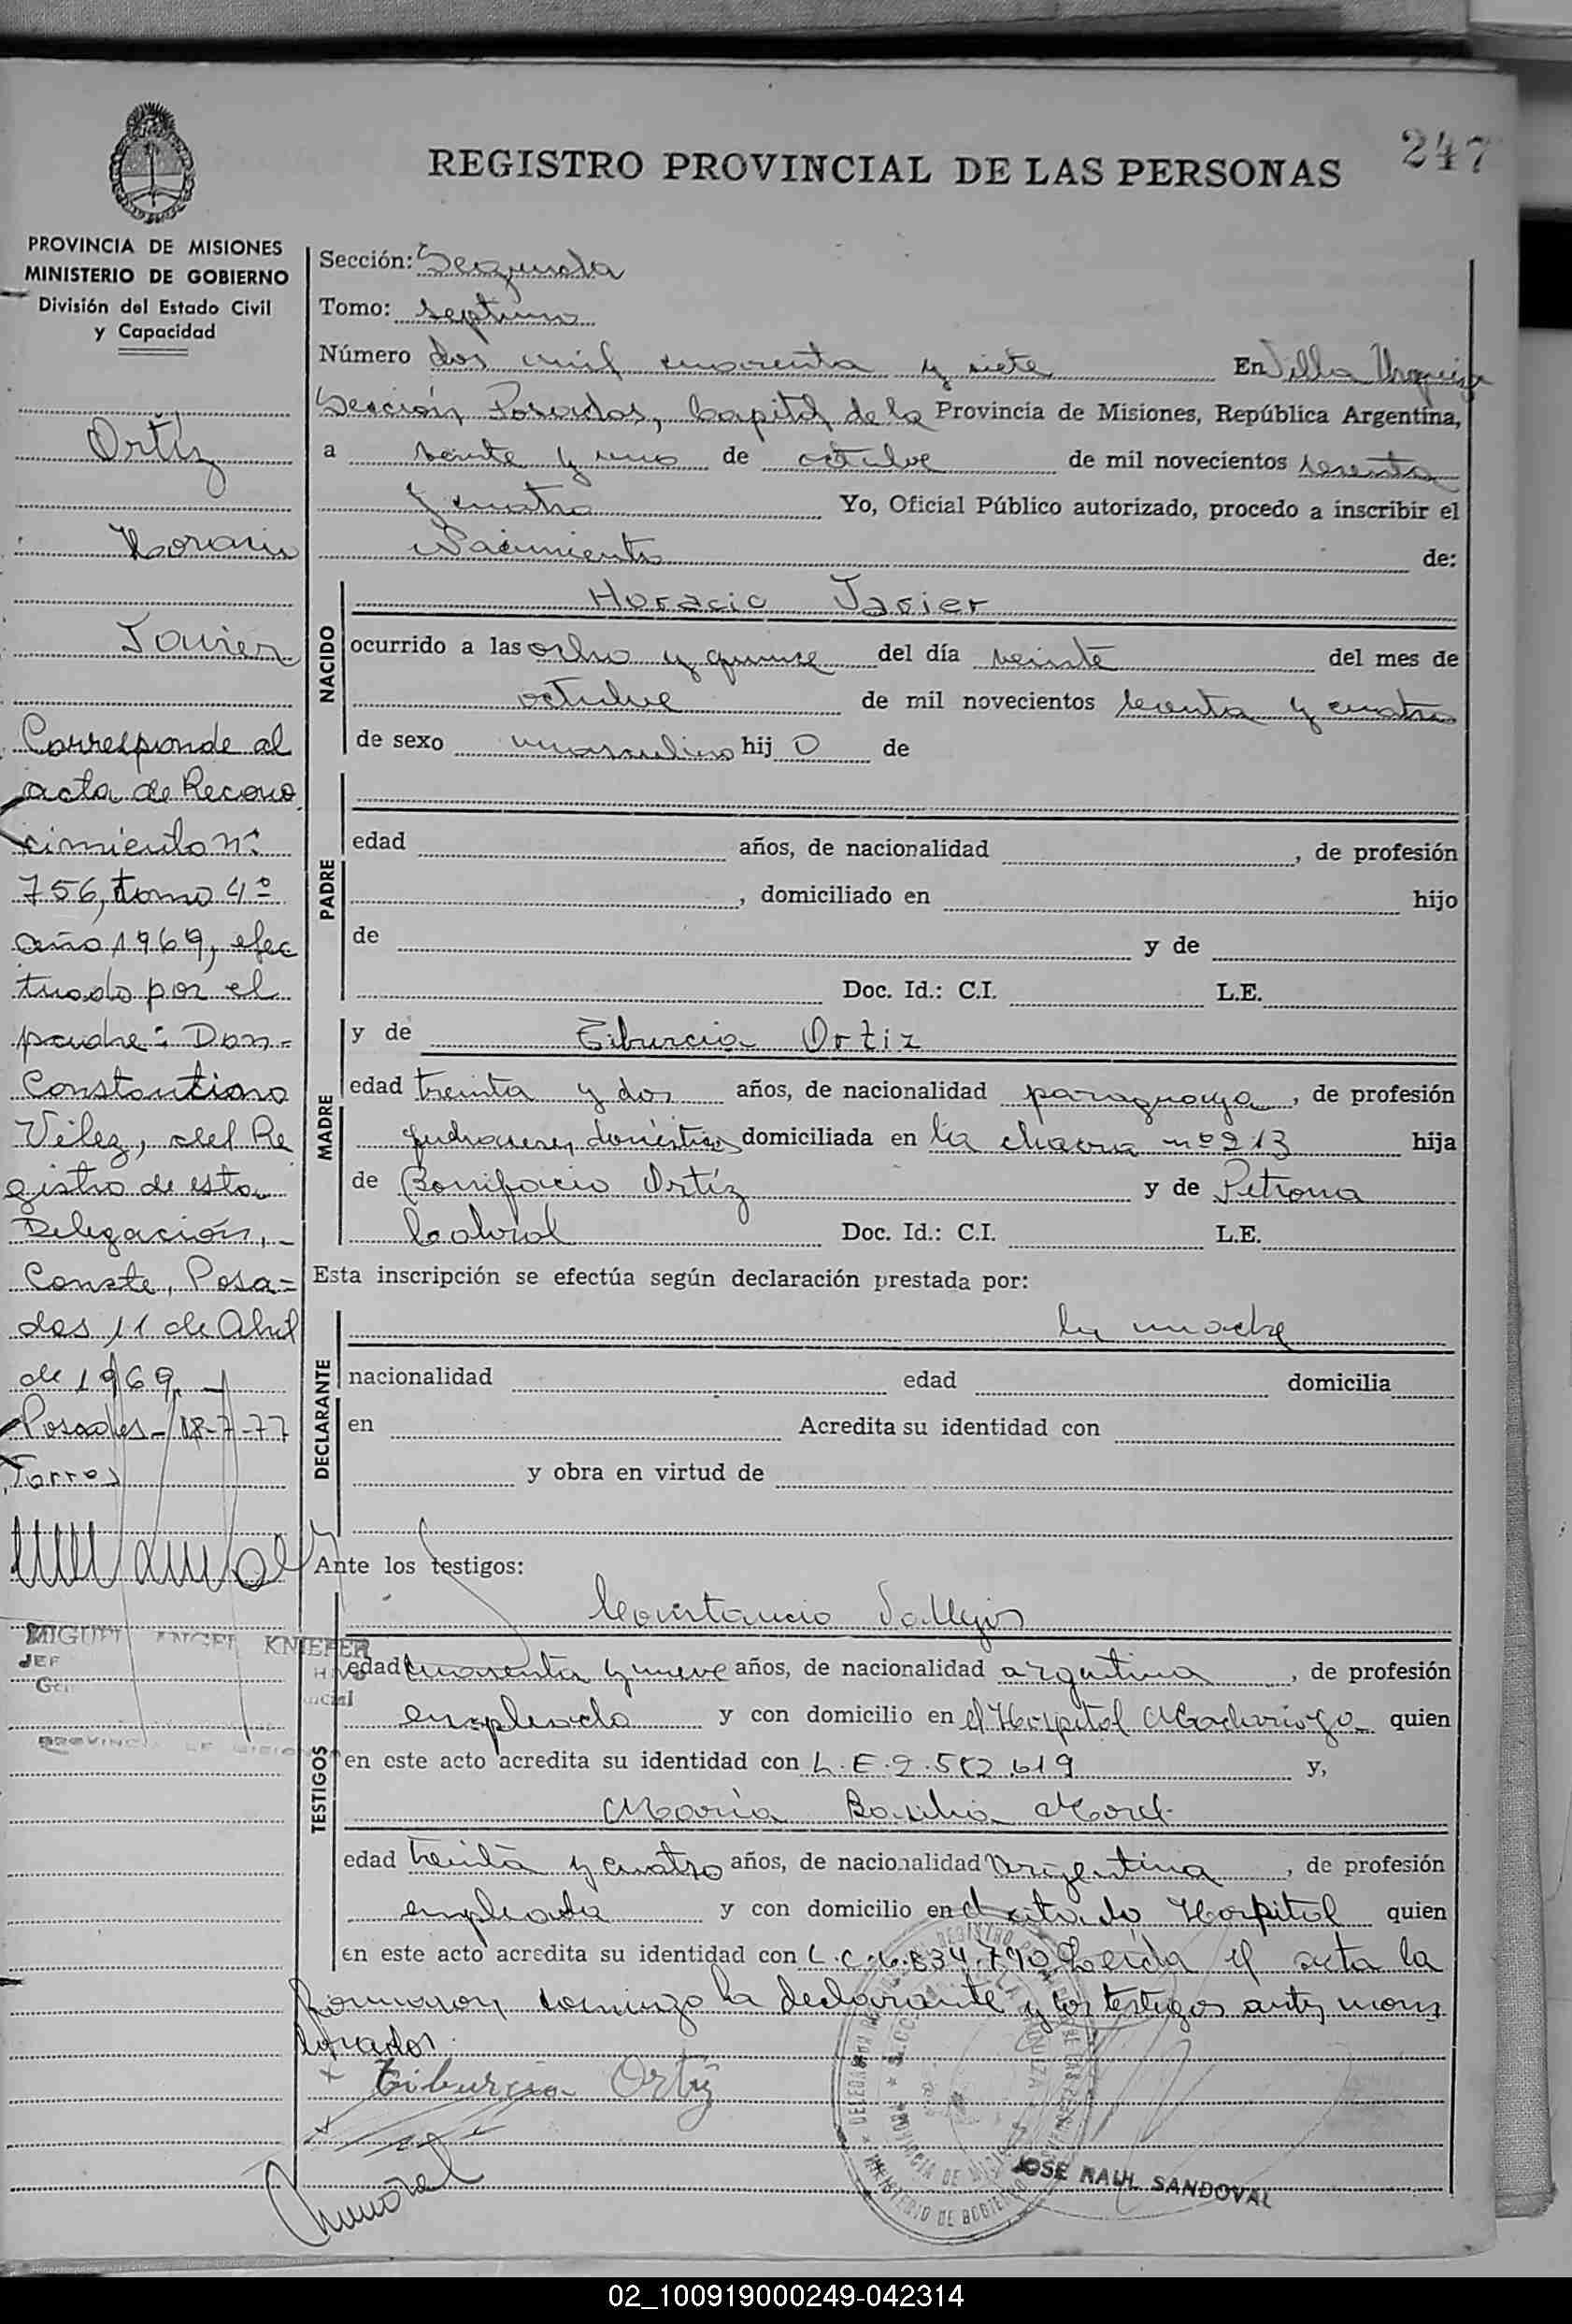 247
REGISTRO PROVINCIAL DE LAS PERSONAS
PROVINCIA DE MISIONES
MINISTERIO DE GOBIERNO
División del Estado Civil
y Capacidad
Ortíz
Horacio
Javier
Corresponde al
acta de Recono
cimiento nº
756, tomo 4º
año 1969, efec
tuado por el
padre: Don-
Constantino
Vélez, del Re
gistro de esta
Delegación,-
Conste, Posa=
das 11 de Abril
de 1969.-
Posadas-18-7-77
Torres
MIGUEL ANGEL KNIEFER
JEF
Sección: Segunda
Tomo: septimo
Número dos mil cuarenta y siete En Villa Urquiza
Sección Posadas, Capital de la Provincia de Misiones, República Argentina,
a veinte y uno de octubre de mil novecientos sesenta
y cuatro Yo, Oficial Público autorizado, procedo a inscribir el
Nacimiento de:
NACIDO
Horacio Javier
ocurrido a las ocho y quince del día veinte del mes de
octubre de mil novecientos sesenta y cuatro
de sexo masculino hij o de
PADRE
edad años, de nacionalidad , de profesión
, domiciliado en hijo
de y de
Doc. Id.: C.I. L.E.
MADRE
y de Tiburcia Ortiz
edad treinta y dos años, de nacionalidad paraguaya, de profesión
quehaceres domésticos domiciliada en la chacra nº 213 hija
de Bonifacio Ortíz y de Petrona
Cabral Doc. Id.: C.I. L.E.
Esta inscripción se efectúa según declaración prestada por:
DECLARANTE
la madre
nacionalidad edad domicilia
en Acredita su identidad con
y obra en virtud de
Ante los testigos:
TESTIGOS
Constancio Vallejos
edad cuarenta y nueve años, de nacionalidad argentina, de profesión
empleado y con domicilio en el Hospital Madariaga quien
en este acto acredita su identidad con L.E. y,
María Basilia Morel
edad treinta y cuatro años, de nacionalidad Argentina, de profesión
empleada y con domicilio en el citado Hospital quien
en este acto acredita su identidad con L.C. 6.834.790 Leída el acta la
firmaron conmigo la declarante y los testigos antes mem
brados.
Tiburcia Ortiz
Morel
JOSE RAUL SANDOVAL
02_100919000249-042314